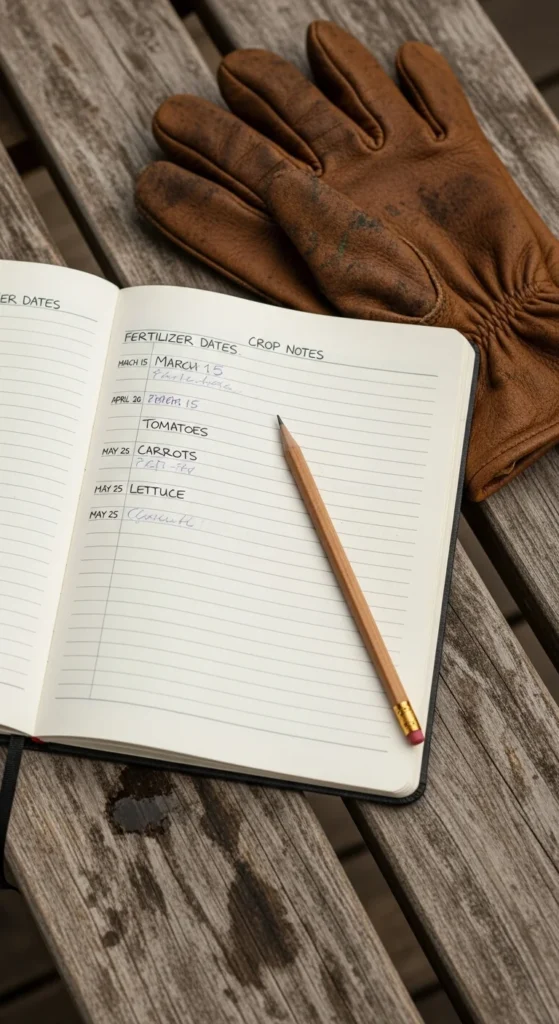 ER DATES
FERTILIZER DATES CROP NOTES
MACH 15 MARCH 15
APRIL 20 15
TOMATOES
MAY 25 CARROTS
MAY 25 LETTUCE
MAY 25